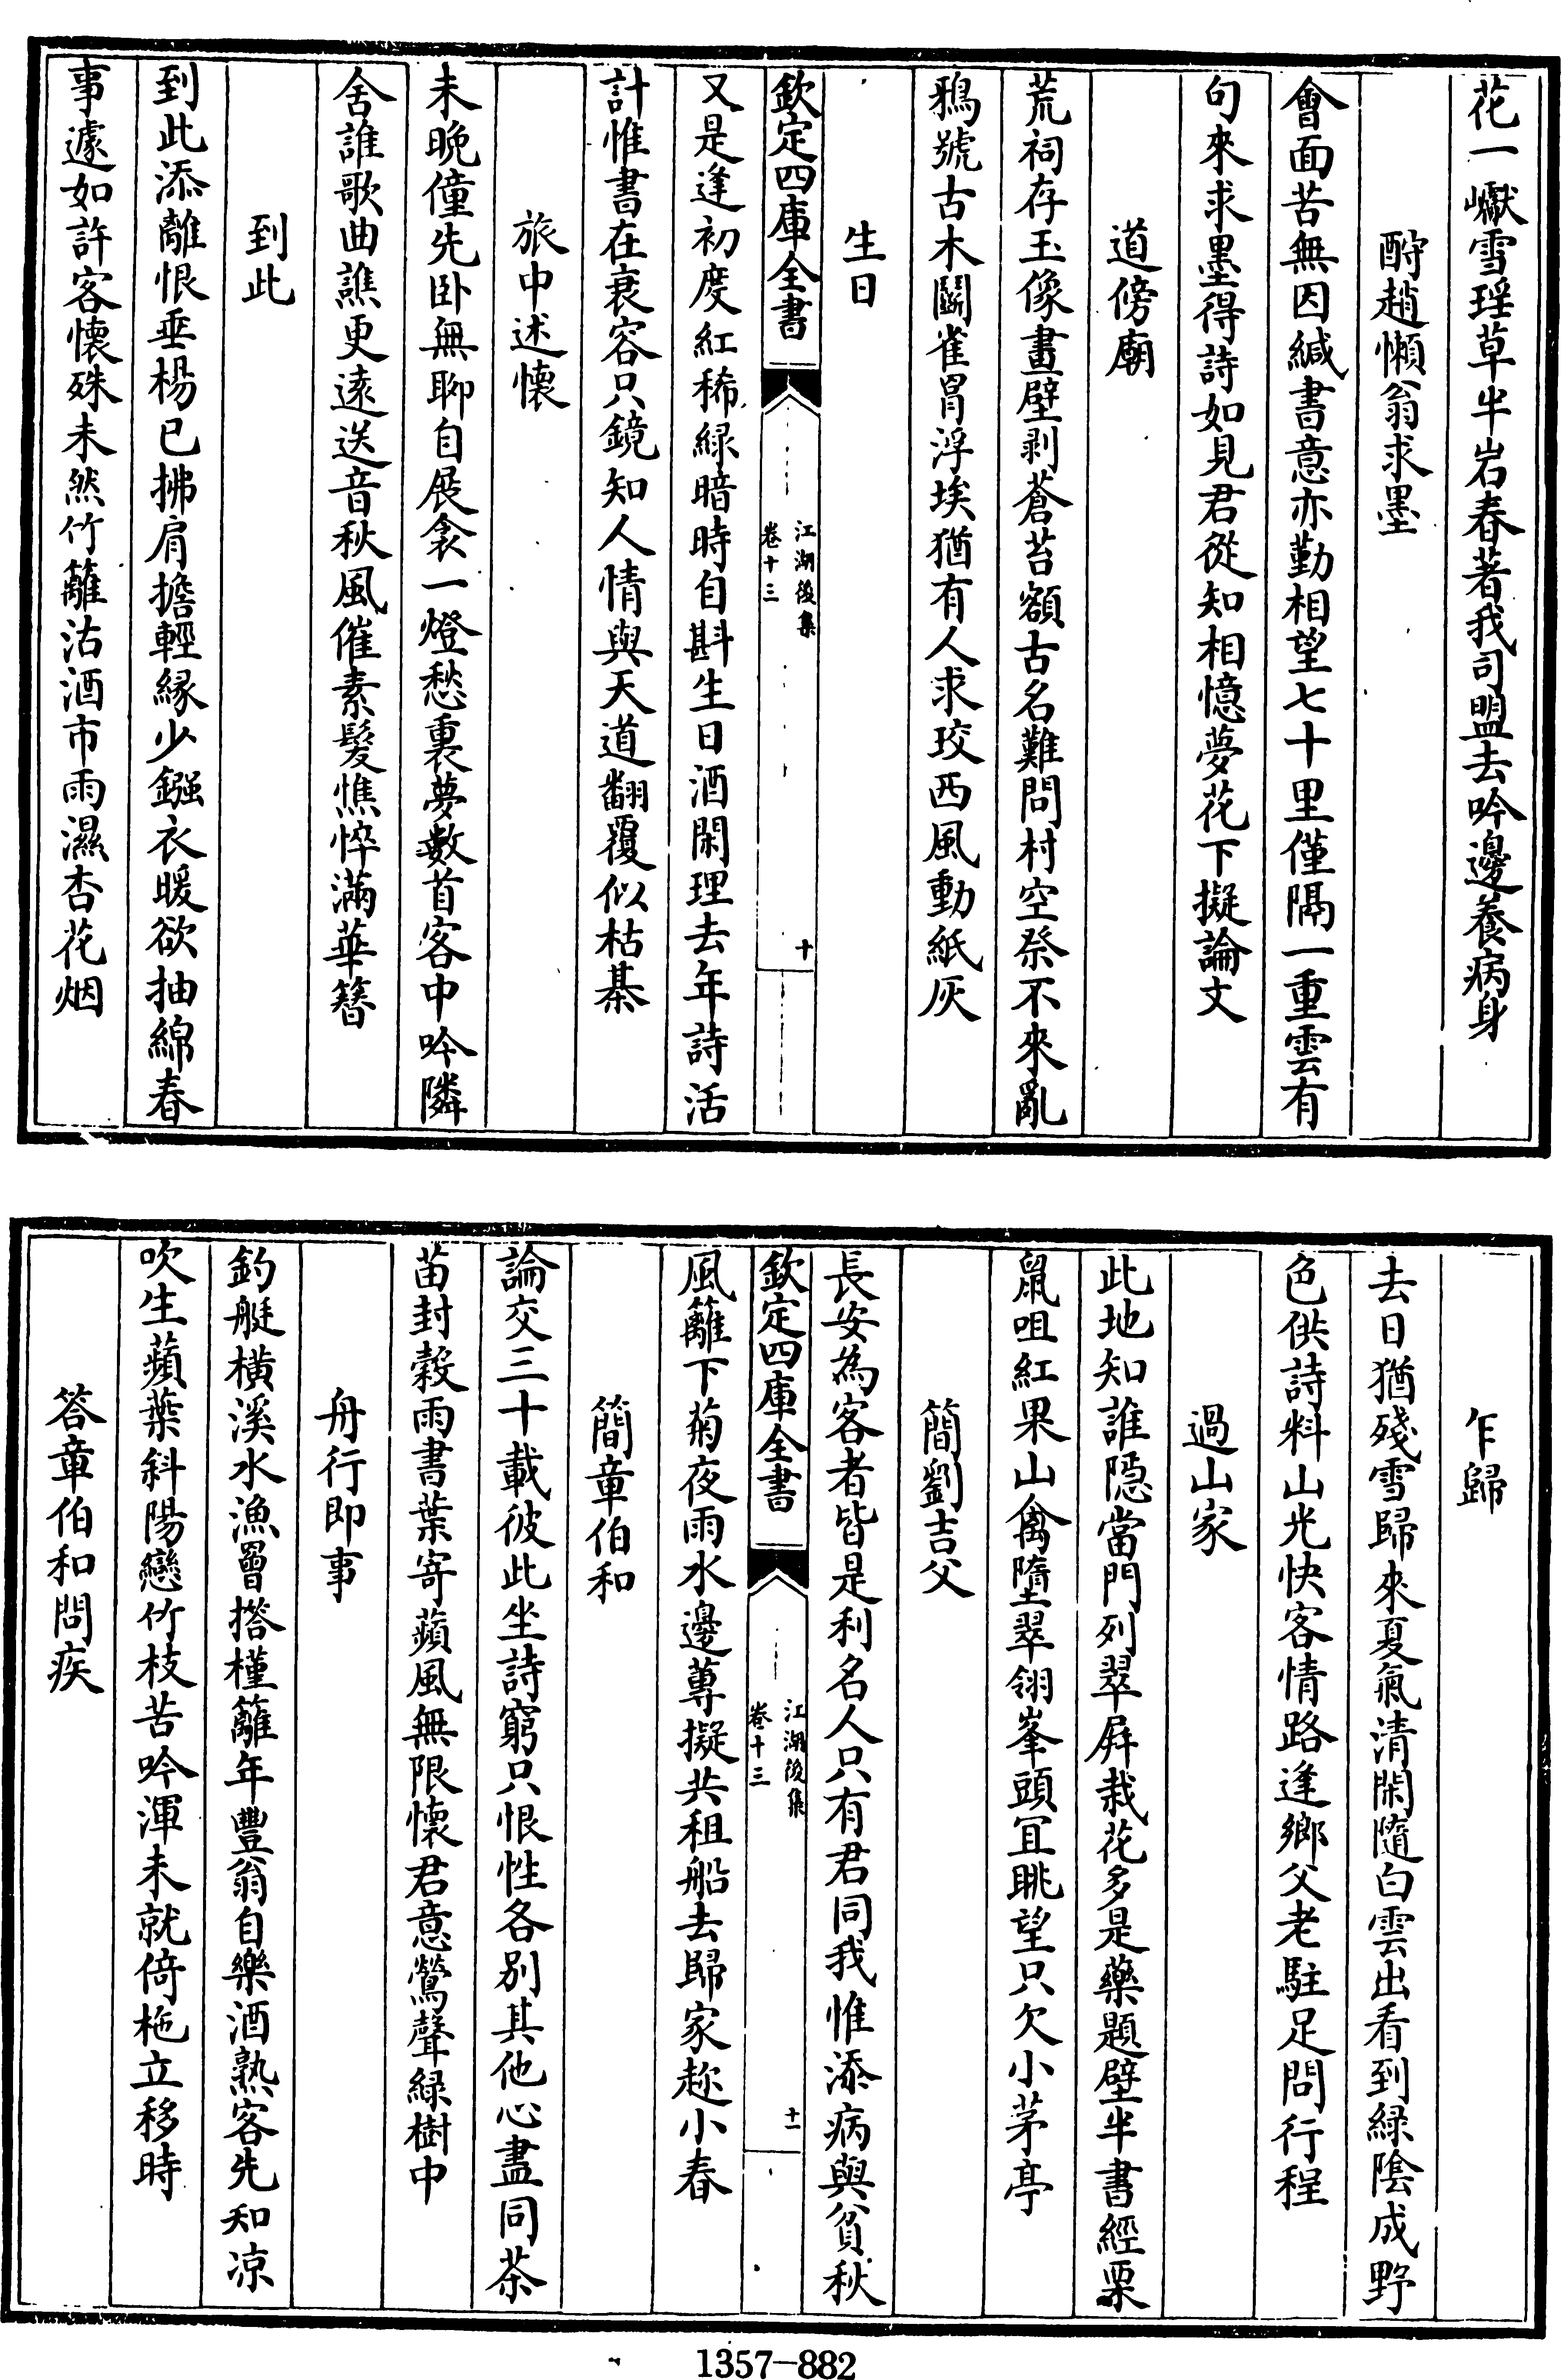 花一巘雪瑶草半岩春著我司盟去吟邊養病身
酹趙懶翁求墨
會面苦無因緘書意亦勤相望七十里僅隔一重雲有
句來求墨得詩如見君從知相憶夢花下擬論文
道傍廟
荒祠存玉像畫壁剥蒼苔額古名難問村空祭不來亂
鴉號古木鬭雀冒浮埃猶有人求珓西風動紙灰
生日
欽定四庫全書
江湖後集
卷十三
十
又是逢初度紅稀緑暗時自斟生日酒閑理去年詩活
計惟書在衰容只鏡知人情與天道翻覆似枯棊
旅中述懷
未晚僮先卧無聊自展衾一燈愁裏夢數首客中吟隣
舍誰歌曲譙更遠送音秋風催素髮憔悴滿華簪
到此
到此添離恨垂楊已拂肩擔輕緣少鏹衣暖欲抽綿春
事遽如許客懷殊未然竹籬沽酒市雨濕杏花烟
乍歸
去日猶殘雪歸來夏氣清閑隨白雲出看到緑陰成野
色供詩料山光快客情路逢鄉父老駐足問行程
過山家
此地知誰隱當門列翠屏栽花多是藥題壁半書經栗
鼠咀紅果山禽墮翠翎峯頭宜眺望只欠小茅亭
簡劉吉父
長安為客者皆是利名人只有君同我惟添病與貧秋
欽定四庫全書
江湖後集
卷十三
十一
風籬下菊夜雨水邊蓴擬共租船去歸家趂小春
簡章伯和
論交三十載彼此坐詩窮只恨性各别其他心盡同茶
苗封穀雨書葉寄蘋風無限懷君意鶯聲緑樹中
舟行即事
釣艇横溪水漁罾撘槿籬年豐翁自樂酒熟客先知凉
吹生蘋葉斜陽戀竹枝苦吟渾未就倚柂立移時
答章伯和問疾
1357-882